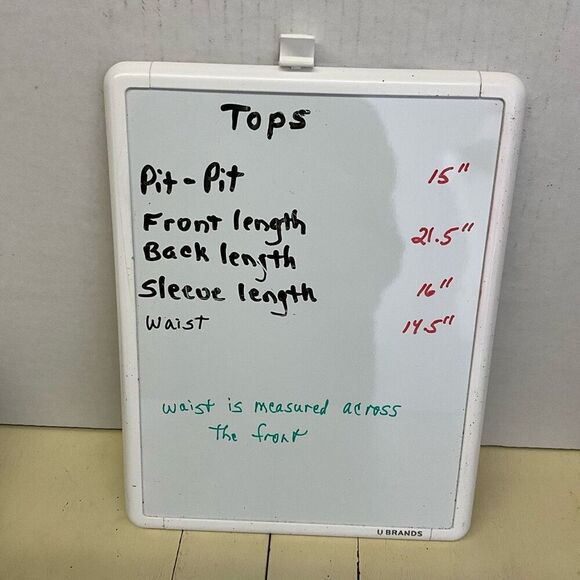 Tops
Pit-Pit 15"
Front length
21.5"
Back length
Sleeve length 16"
Waist 14.5"
waist is measured across
The front
U BRANDS